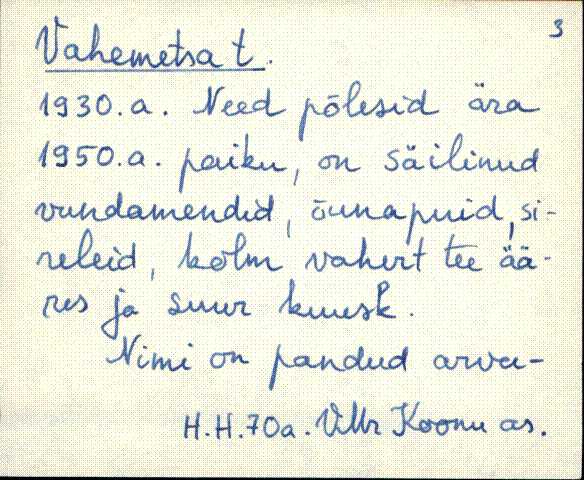 3
Vahemetsa t.
1930.a. Need põlesid ära
1950.a. paiku, on säilinud
vundamendid, õunapuid, si-
releid, kolm vahert tee ää-
res ja suur kuusk.
Nimi on pandud arva-
H.H. 70a. VMr Koonu as.